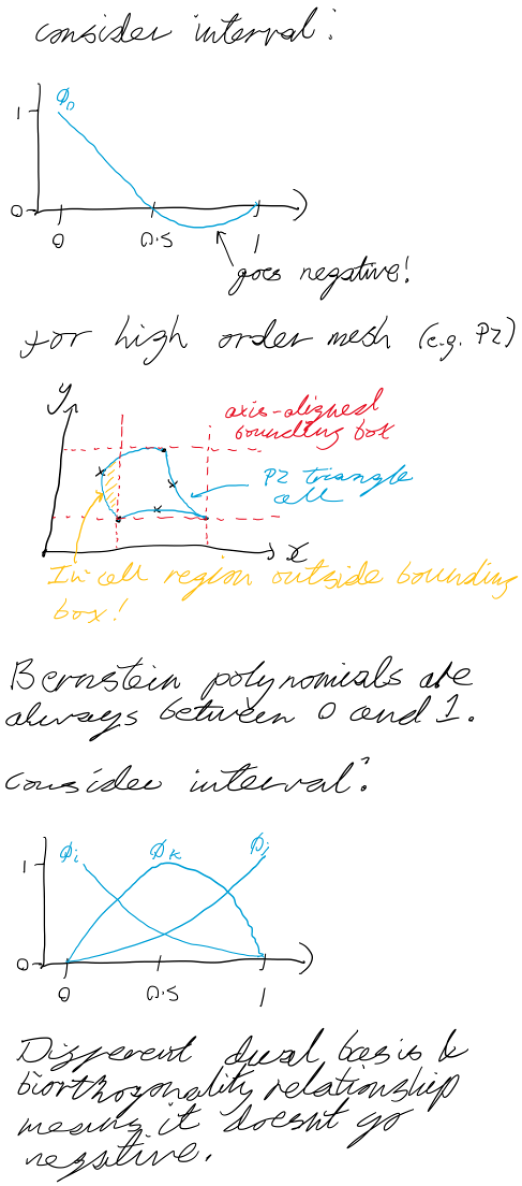 consider interval:
1
ϕ₀
0
0
0.5
1
goes negative!
for high order mesh (e.g. P2)
y
axis-aligned
bounding box
P2 triangle
cell
x
In cell region outside bounding
box!
Bernstein polynomials are
always between 0 and 1.
consider interval:
1
ϕi
ϕk
ϕj
0
0
0.5
1
Different dual basis &
biorthogonality relationship
means it doesnt go
negative.